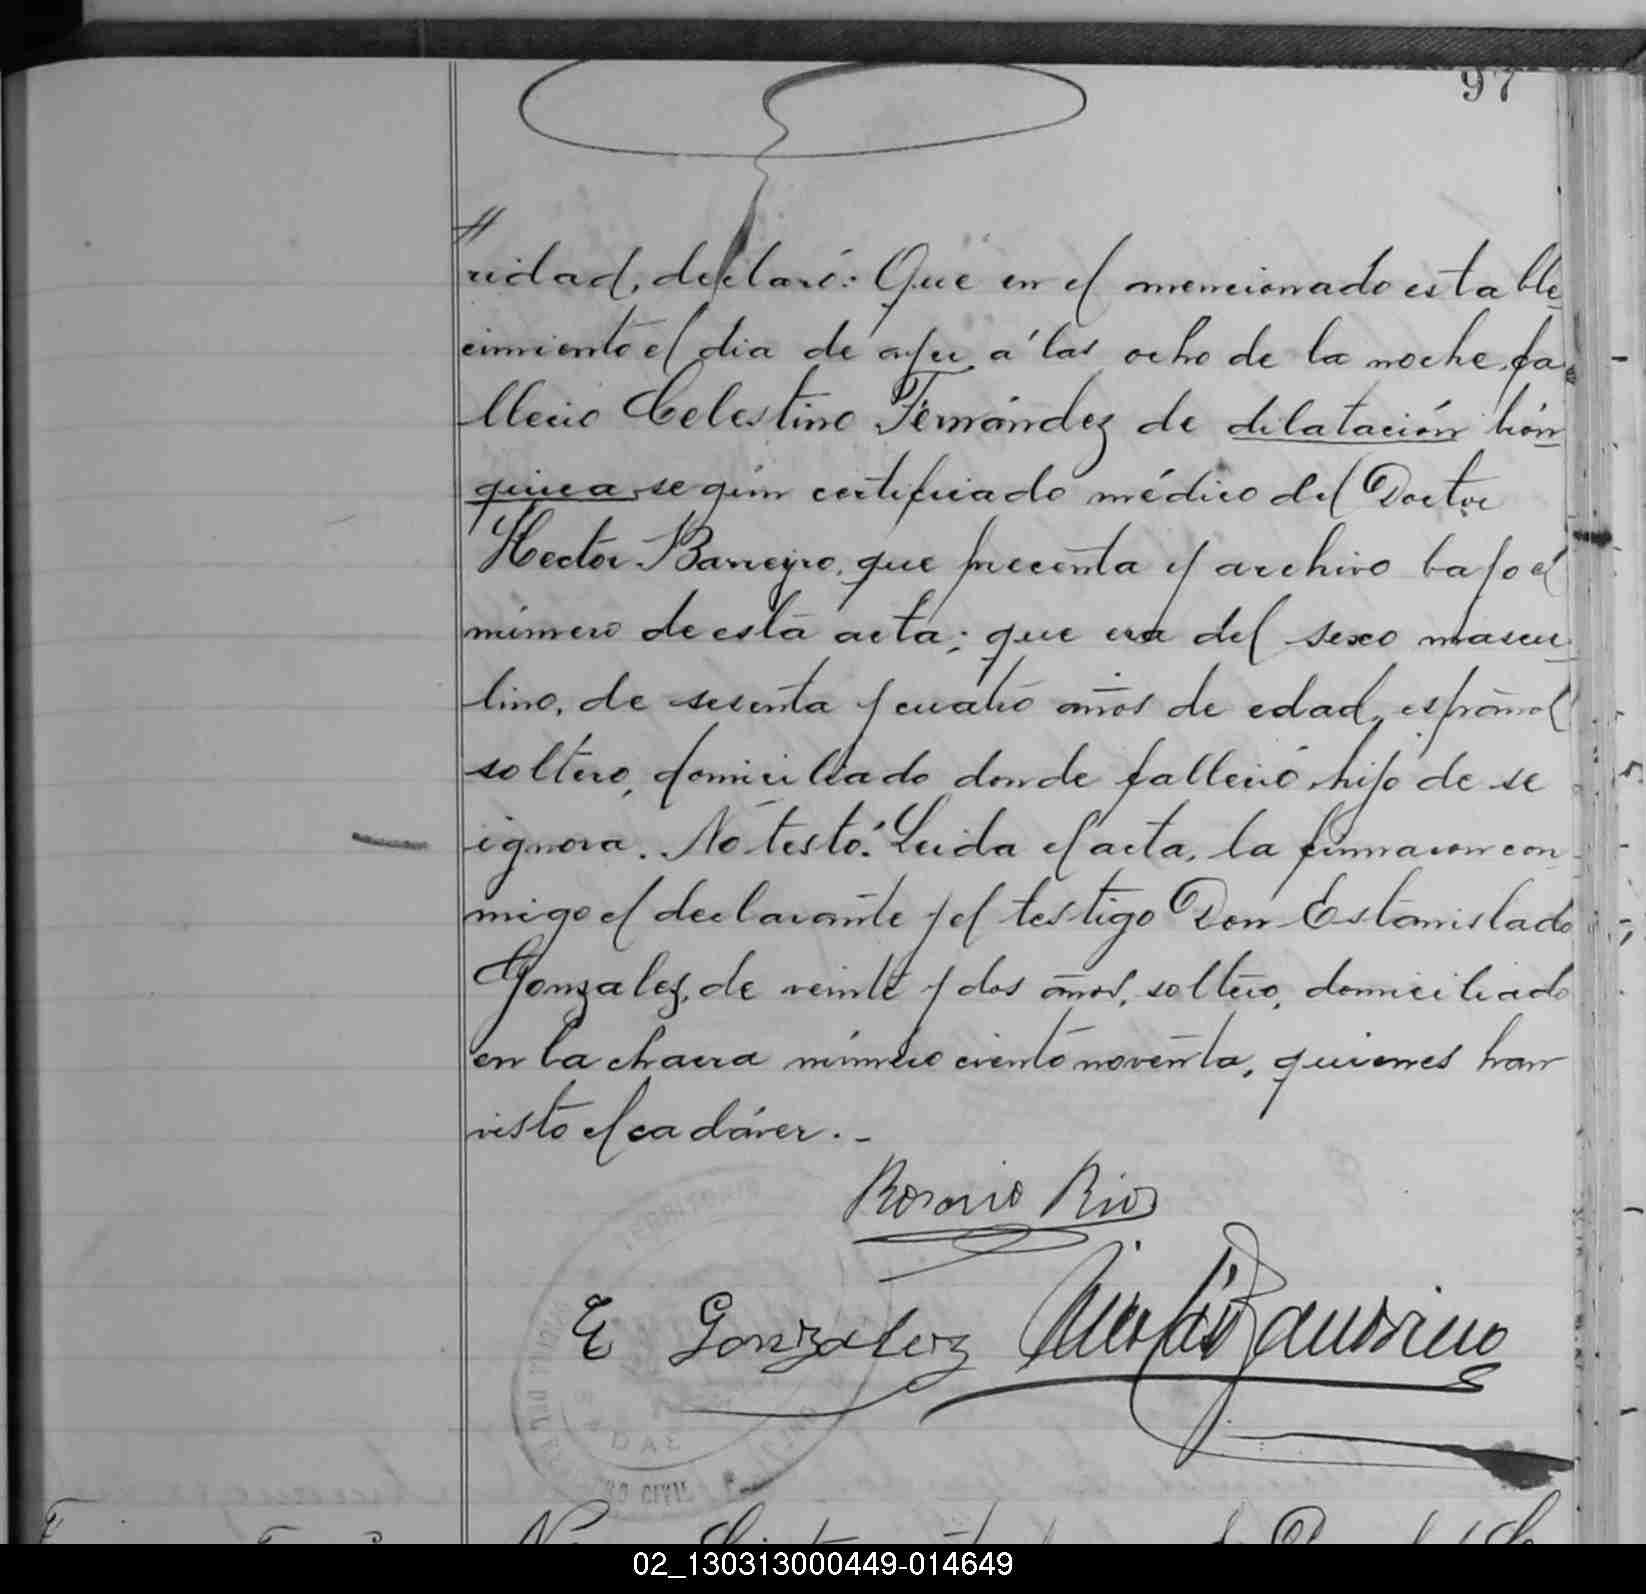 97
ridad, declaró: Que en el mencionado estable
cimiento el dia de ayer á las ocho de la noche, fa
lleció Celestino Fernández de dilatación brón
quica, según certificado médico del Doctor
Hector Barreyro, que precenta y archivo bajo el
número de esta acta; que era del sexo mascu
lino, de sesenta y cuatro años de edad, español
soltero, domiciliado donde falleció, hijo de se
ignora. No testó. Leida el acta, la firmaron con
migo el declarante y el testigo Don Estanislado
Gonzalez, de veinte y dos años, soltero, domiciliado
en la chacra número ciento noventa, quienes han
visto el cadáver. -
Rosario Rios
E Gonzalez Nicolás
TERRITORIO
CIVIL
02_130313000449-014649